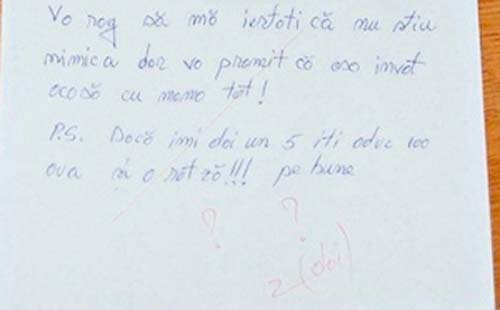 Vo rog să mă iertati că nu stiu
nimica dar vo promit că oso invăt
acasă cu mama tăt!
P.S. Dacă imi dai un 5 iti aduc 100
oua și o rătză!!! pe bune
? ?
2 (doi)